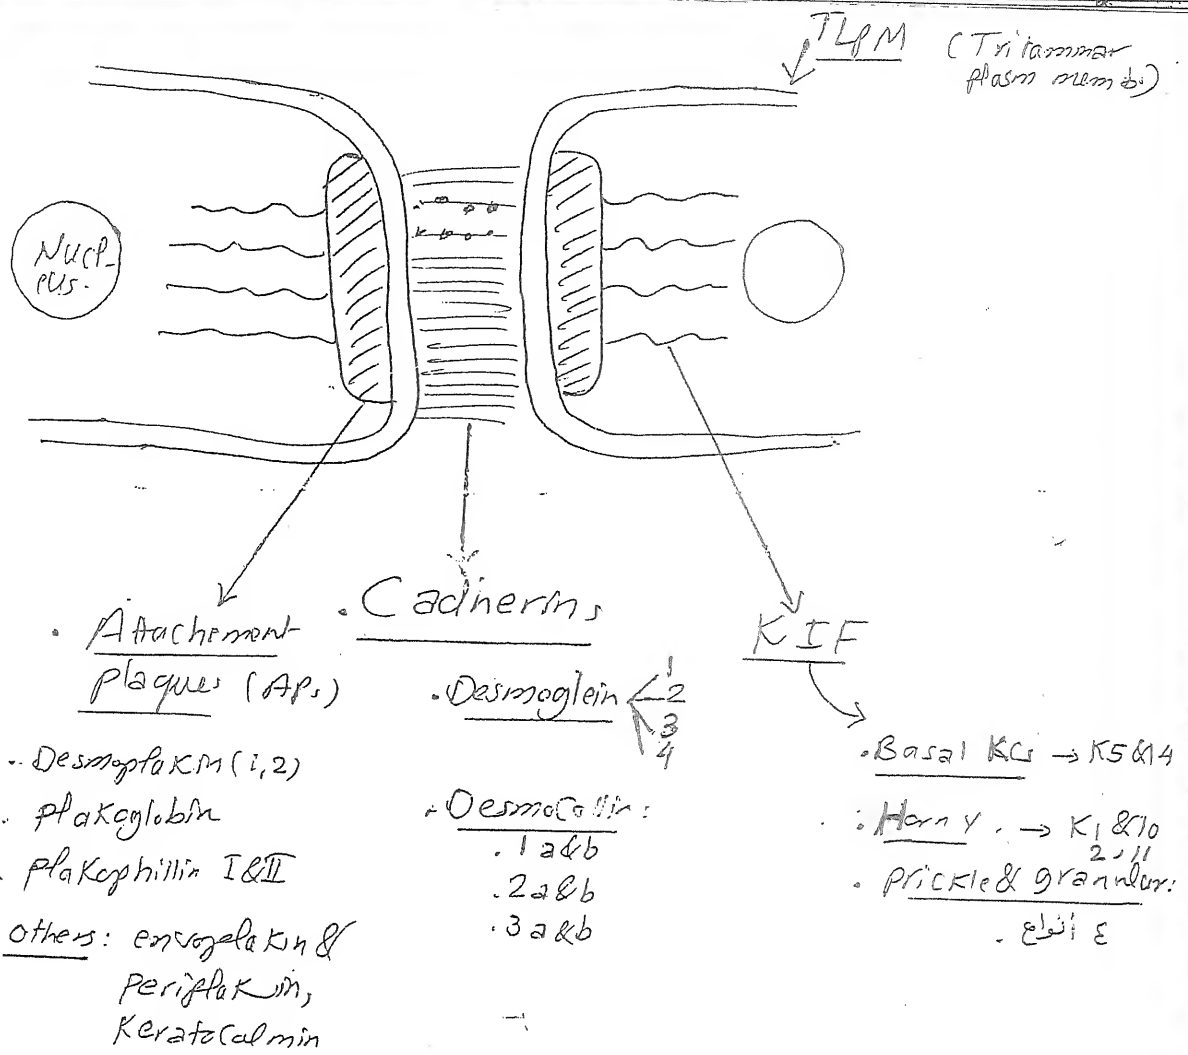 TLPM (Trilammar
plasm memb.)
Nucl-
eus.
. Attachement
plaques (APs)
. Desmoplakin (1,2)
. plakoglobin
. plakophillin I & II
others: envoplakin &
periplakin,
Keratocalmin
. Cadherins
. Desmoglein
1
2
3
4
. Desmocollin:
. 1 a & b
. 2 a & b
. 3 a & b
KIF
. Basal KCs → K5 & 14
. Horny. → K1 & 10
2, 11
. prickle & grannular:
٤ أنواع .